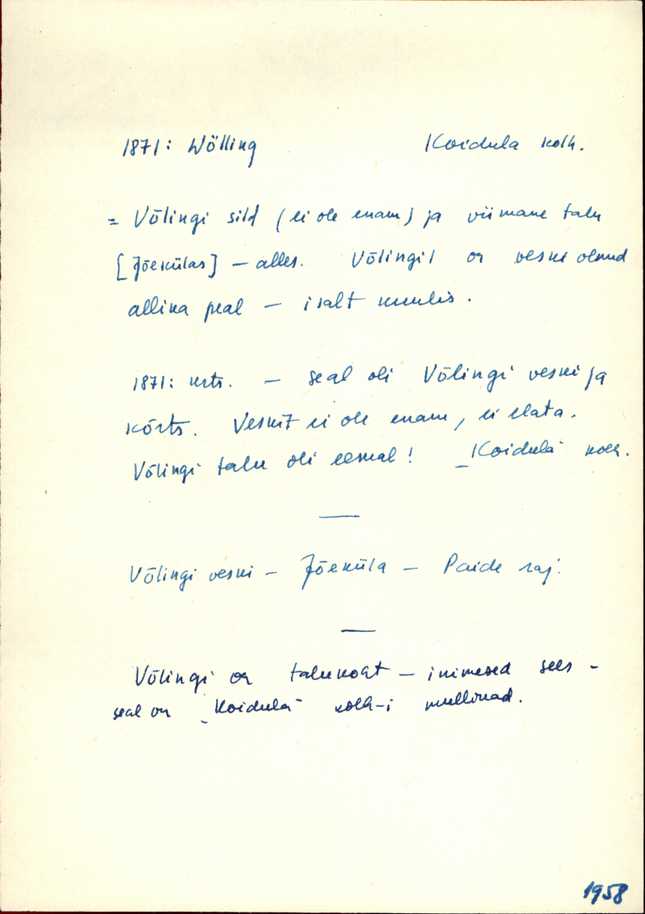 1871: Wölling Koidula kolh.
= Võlingi sild (ei ole enam) ja viimane talu
[Jõekülas] – alles. Võlingil on veski olnud
allika peal – isalt kuulis.
1871: krts. – seal oli Võlingi veski ja
kõrts. Veskit ei ole enam, ei elata.
Võlingi talu oli eemal! „Koidula" kolh.
Võlingi veski – Jõeküla – Paide raj.
Võlingi on talukoht – inimesed sees –
seal on „Koidula" kolh-i mullikad.
1958